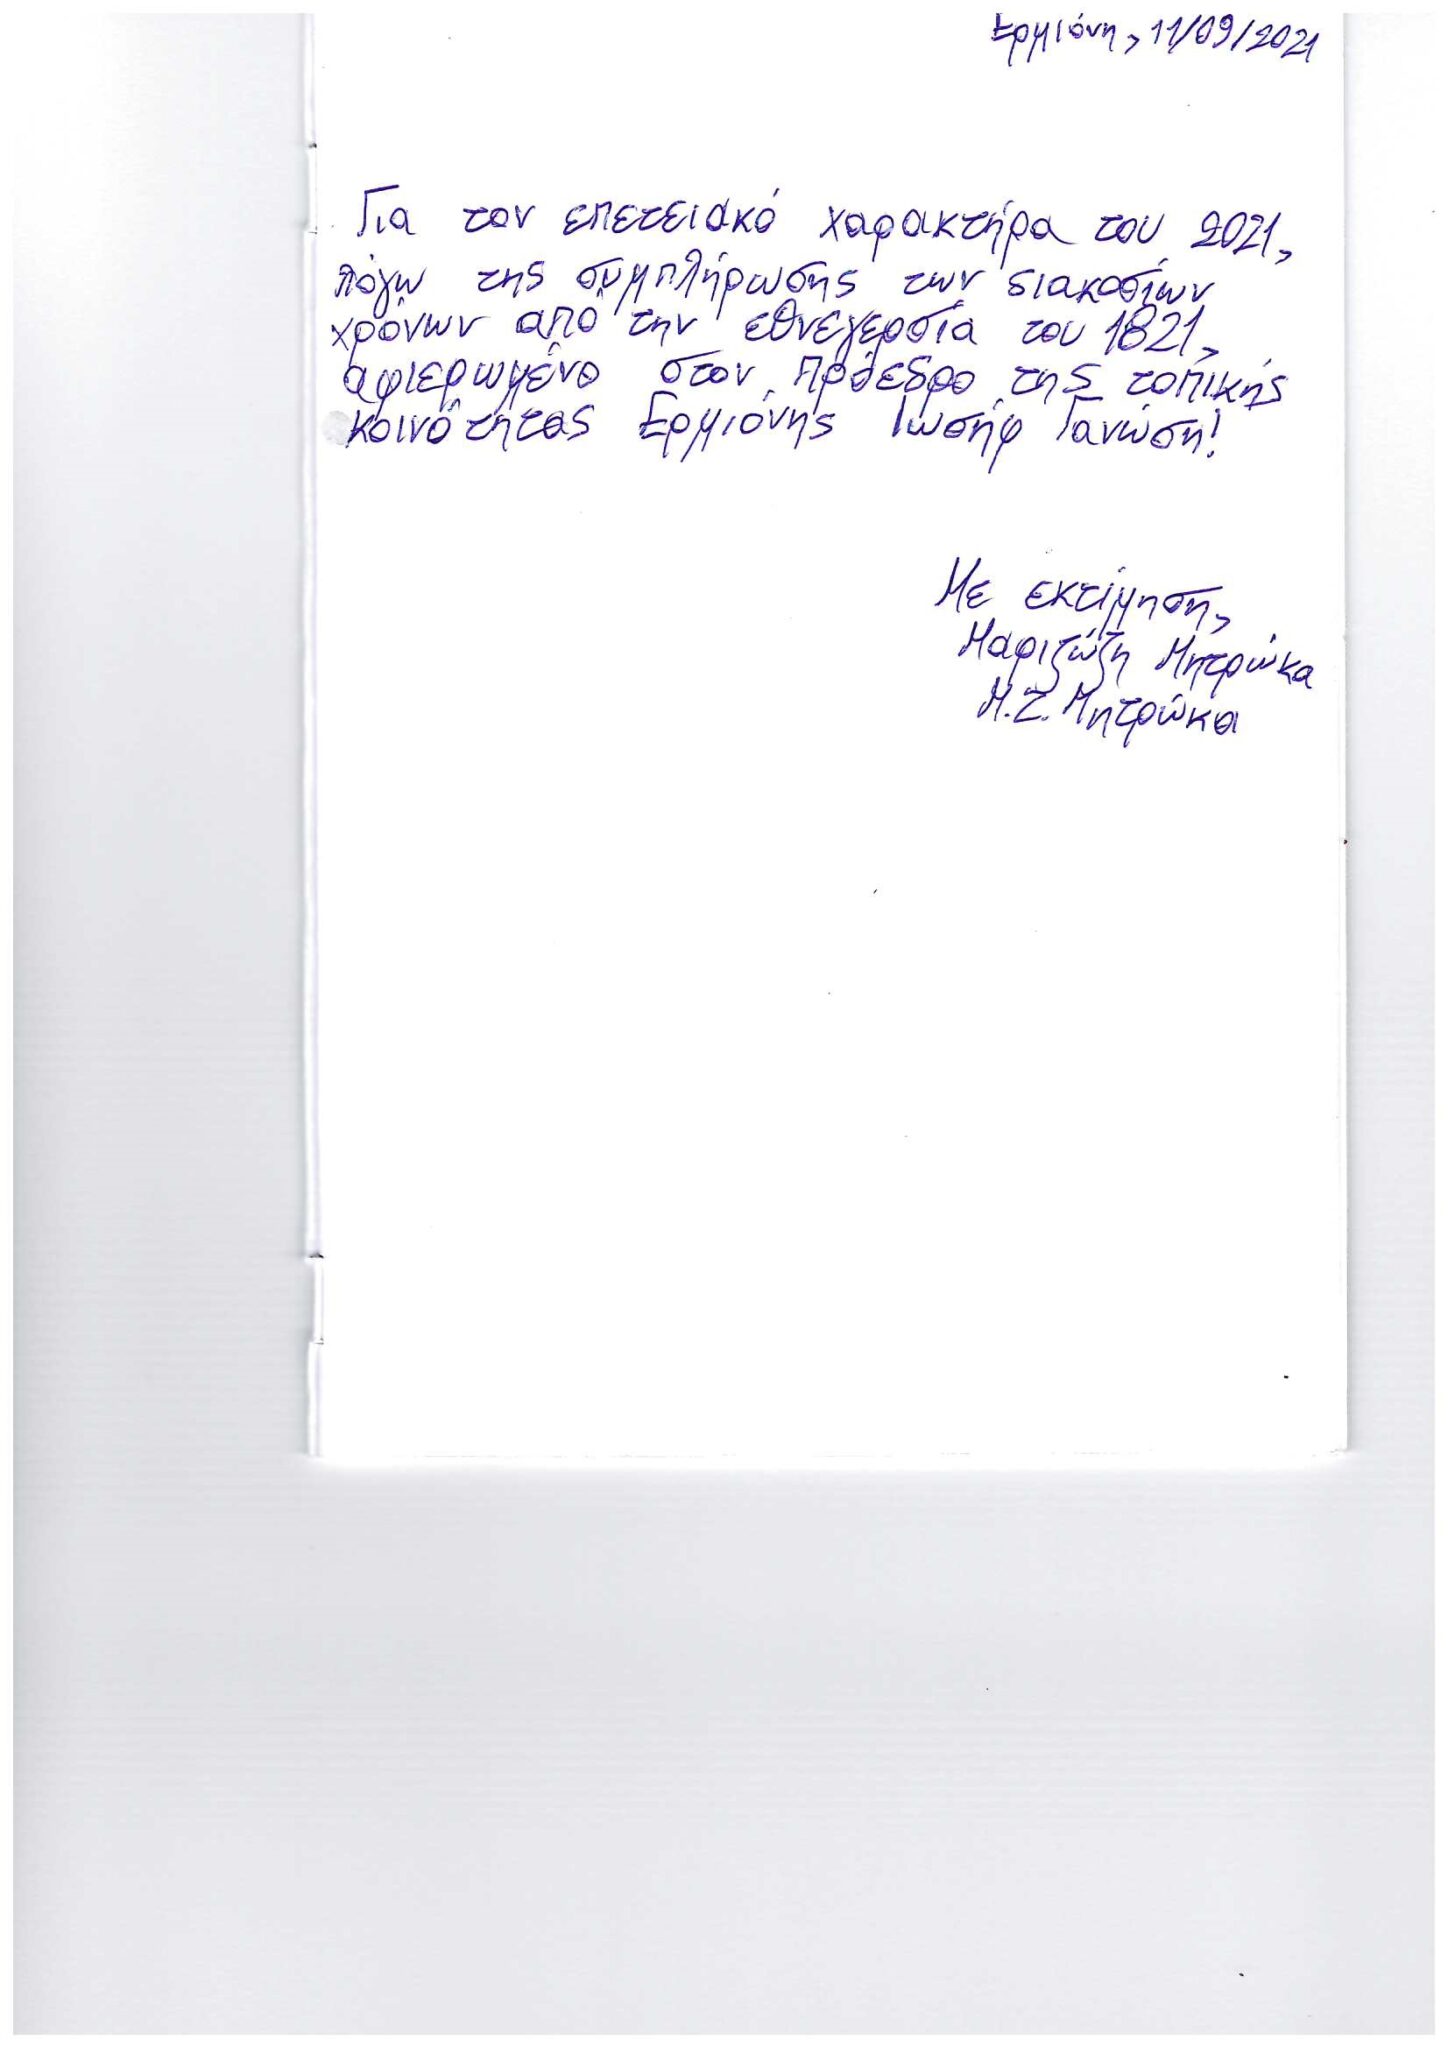 Ερμιόνη, 11/09/2021
Για τον επετειακό χαρακτήρα του 2021,
λόγω της συμπλήρωσης των διακοσίων
χρόνων από την εθνεγερσία του 1821,
αφιερωμένο στον Πρόεδρο της τοπικής
κοινότητας Ερμιόνης Ιωσήφ Γανώση!
Με εκτίμηση,
Μαριζώζη Μητρώκα
Μ.Ζ. Μητρώκα